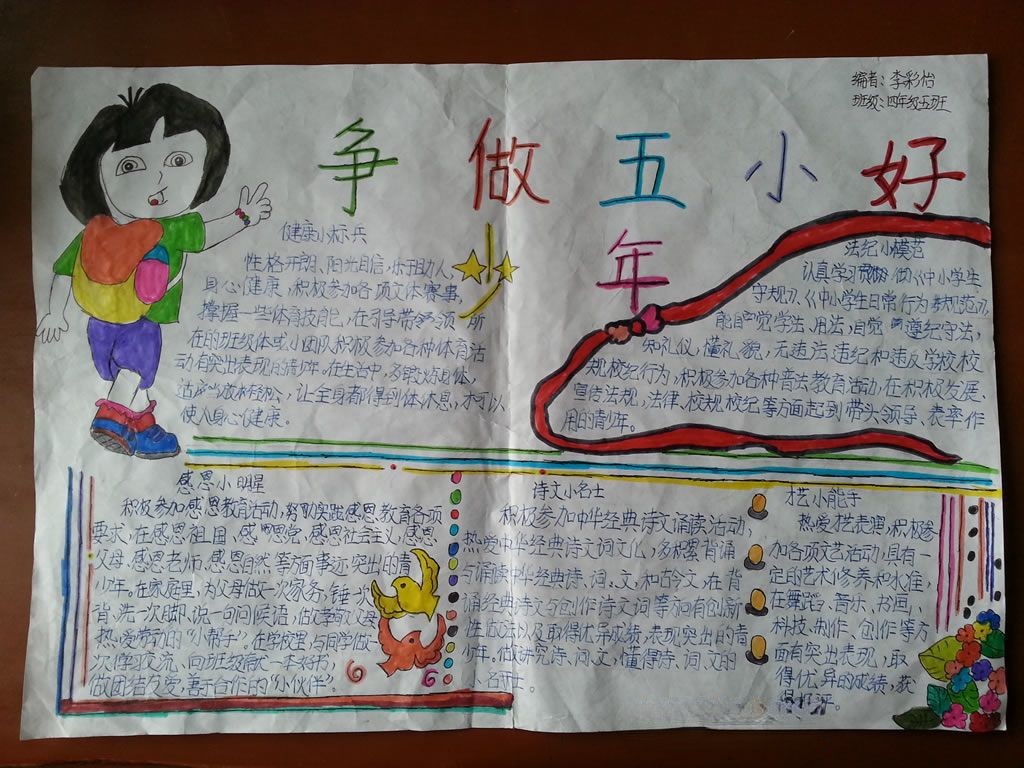 编者：李彩怡
班级：四年级五班
争做五小好
少年
健康小标兵
性格开朗、阳光自信，乐于助人，
身心健康，积极参加各项文体赛事，
掌握一些体育技能，在引导带领 所
在的班级体或小团队积极参加各种体育活
动有突出表现的青少年。在生活中，多锻炼身体，
适当放松，让全身都得到体休息，才可以
使人身心健康。
法纪小模范
认真学习 做《中小学生
守规》、《中小学生日常行为 规范》，
能自觉学法、用法，自觉 遵纪守法，
知礼仪，懂礼貌，无违法违纪和违反学校校
规校纪行为，积极参加各种普法教育活动，在积极发展、
宣传法规，法律、校规校纪等方面起到带头领导、表率作
用的青少年。
感恩小明星
积极参加感恩教育活动，努力实践感恩教育各项
要求，在感恩祖国、感恩党、感恩社会主义，感恩
父母、感恩老师、感恩自然等方面事迹突出的青
少年。在家庭里，为父母做一次家务，锤一次
背，洗一次脚，说一句问候语，做孝敬父母
热爱劳动的“小帮手”。在学校里，与同学做
一次 交流，向班级献一本好书，
做团结友爱，善于合作的“小伙伴”。
诗文小名士
积极参加中华经典诗文诵读活动，
热爱中华经典诗文词文化，多积累背诵
与诵读中华经典诗、词、文，和古今文，在背
诵经典诗文与创作诗文词等方面有创新
性做法以及取得优异成绩，表现突出的青
少年。做研究诗、词、文，懂得诗、词、文的
小名士。
才艺小能手
热爱艺 ，积极参
加各项文艺活动，具有一
定的艺术修养和水准，
在舞蹈、音乐、书画、
科技、制作、创作等方
面有突出表现，取
得优异的成绩，获
得好评。